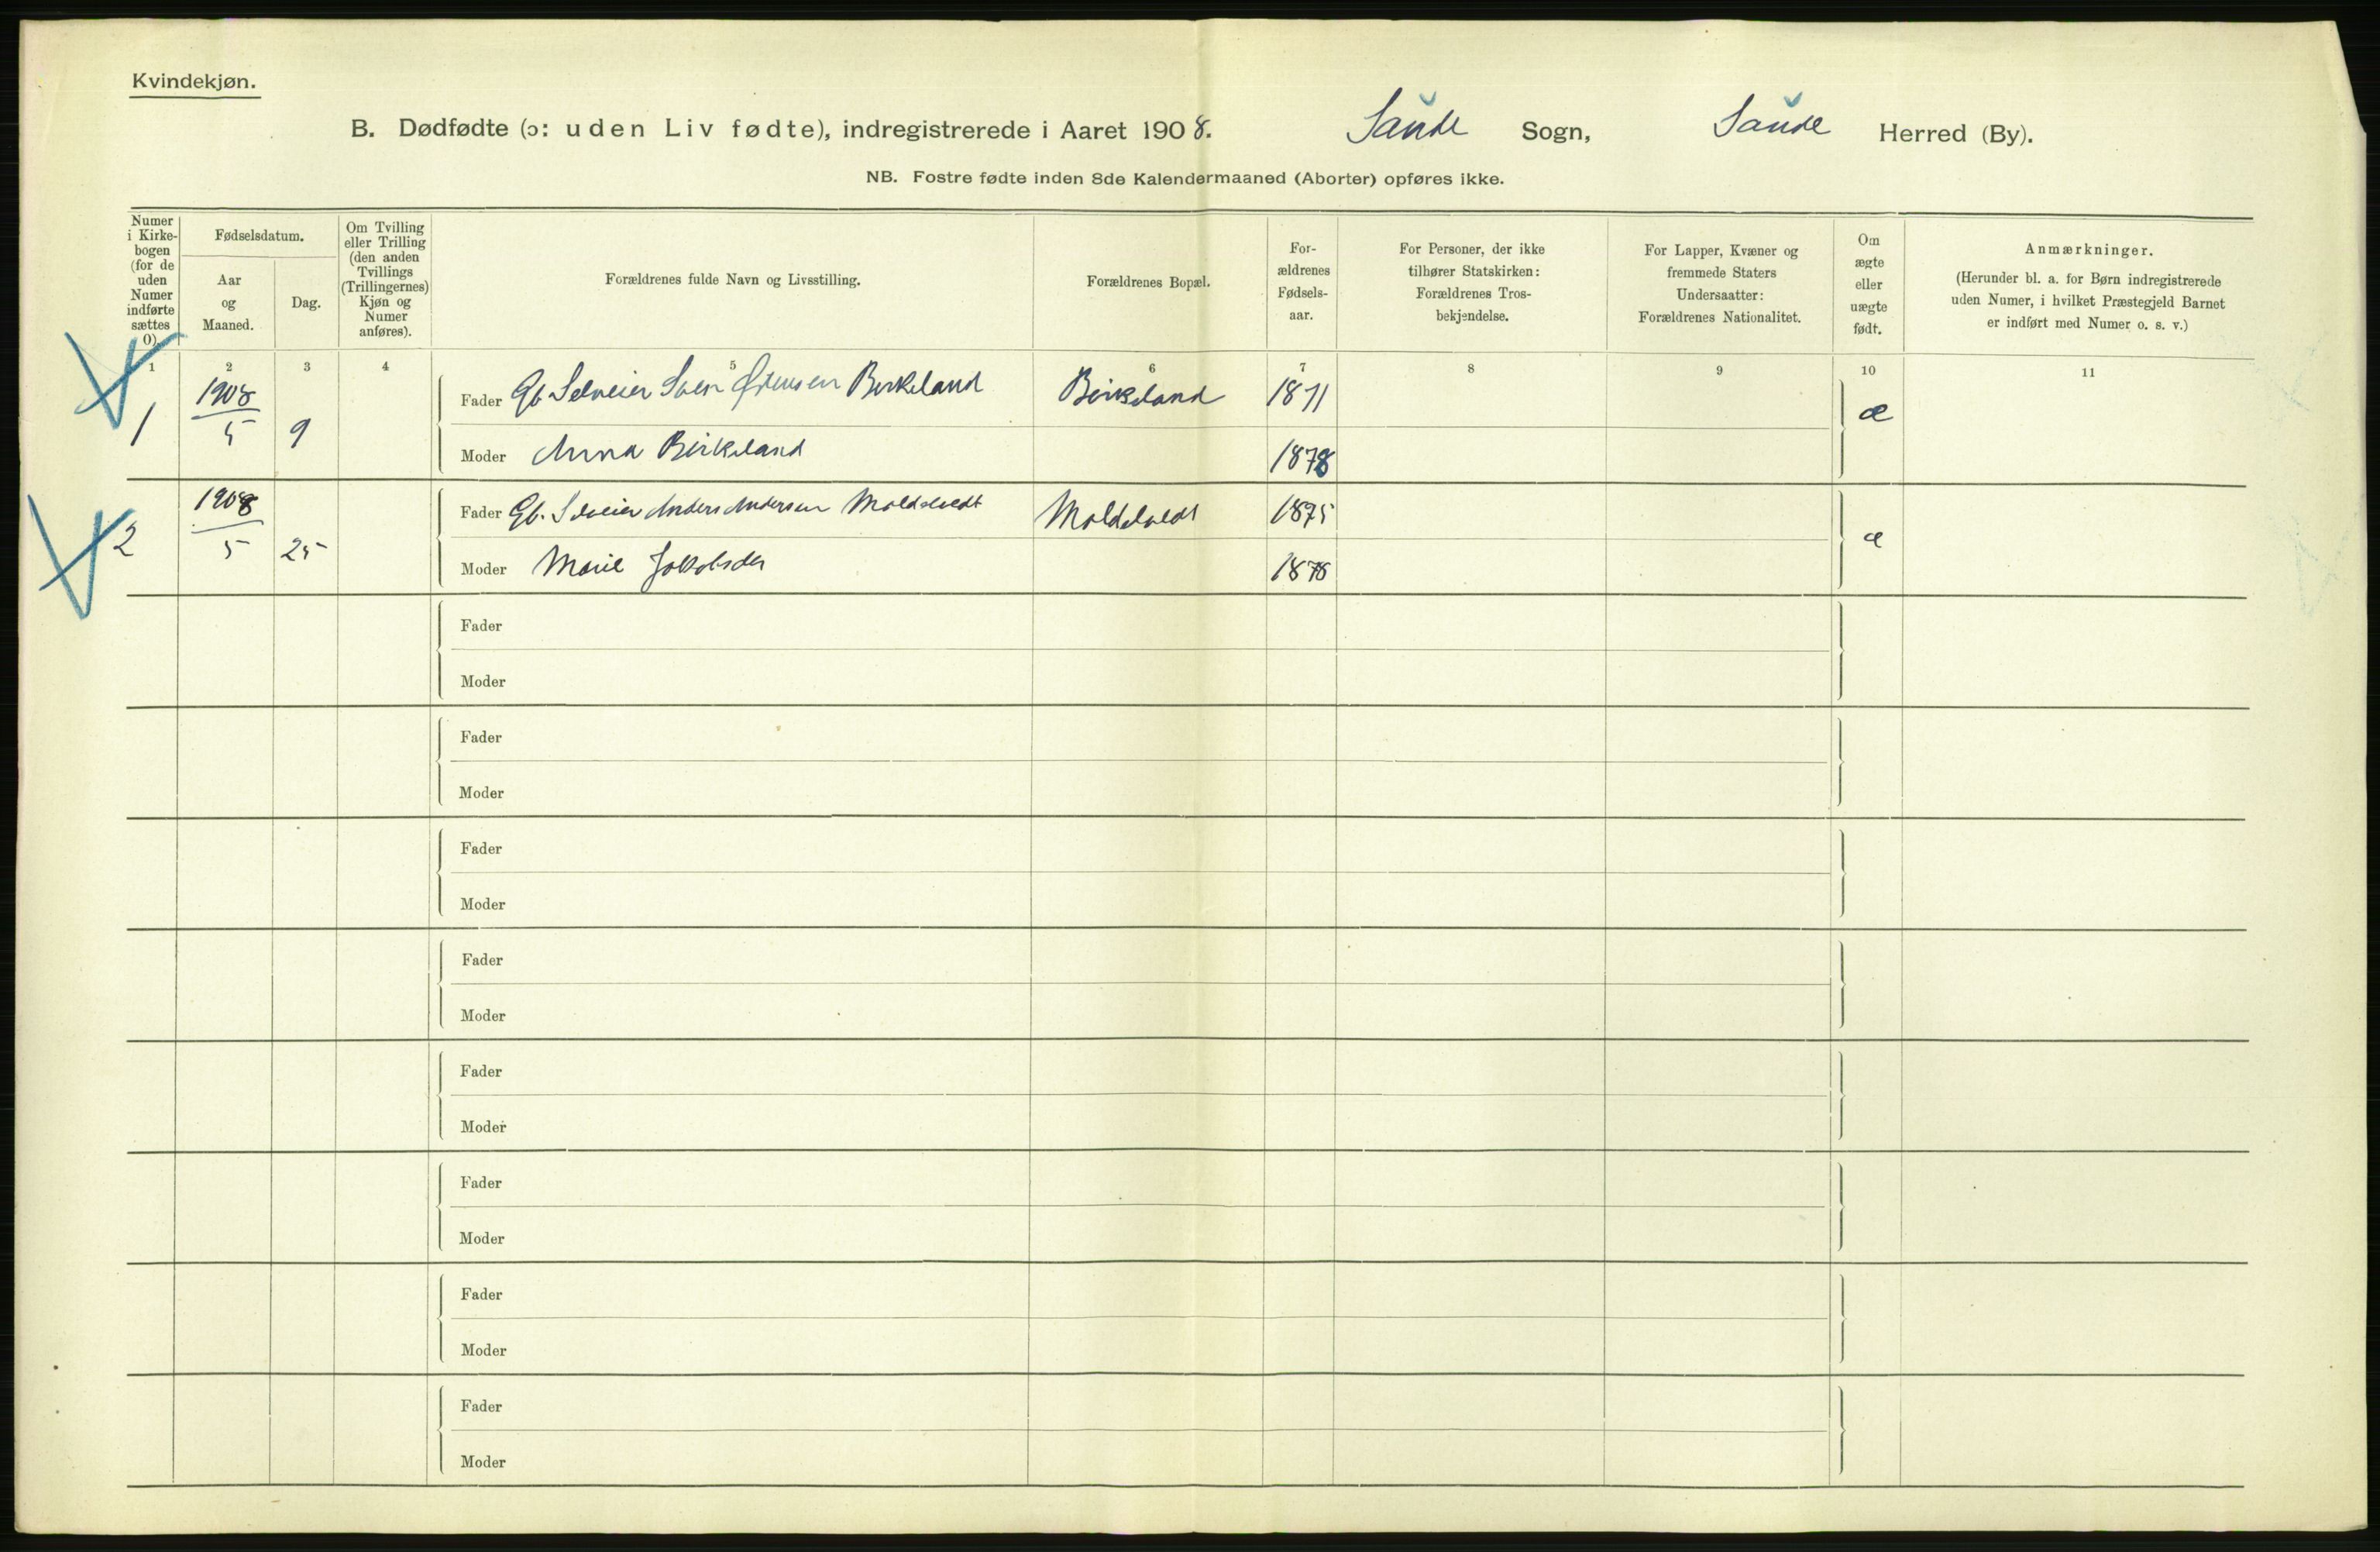 Kvindekjøn.
B. Dødfødte (ɔ: uden Liv fødte), indregistrerede i Aaret 1908. Saude Sogn, Saude Herred (By).
NB. Fostre fødte inden 8de Kalendermaaned (Aborter) opføres ikke.
Numer
i Kirke-
bogen
(for de
uden
Numer
indførte
sættes
0).
Fødselsdatum.
Aar
og
Maaned.
Dag.
Om Tvilling
eller Trilling
(den anden
Tvillings
(Trillingernes)
Kjøn og
Numer
anføres).
Forældrenes fulde Navn og Livsstilling.
Forældrenes Bopæl.
For-
ældrenes
Fødsels-
aar.
For Personer, der ikke
tilhører Statskirken:
Forældrenes Tros-
bekjendelse.
For Lapper, Kvæner og
fremmede Staters
Undersaatter:
Forældrenes Nationalitet.
Om
ægte
eller
uægte
født.
Anmærkninger.
(Herunder bl. a. for Børn indregistrerede
uden Numer, i hvilket Præstegjeld Barnet
er indført med Numer o. s. v.)
1 2 3 4 5 6 7 8 9 10 11
1 1908/5 9 Fader Gb. Selveier Birkeland Birkeland 1871 æ
Moder Anna Birkeland 1878
2 1908/5 25 Fader Gb. Selveier Anders Andersen 1875 æ
Moder Marie Jakobsdtr 1878
Fader
Moder
Fader
Moder
Fader
Moder
Fader
Moder
Fader
Moder
Fader
Moder
Fader
Moder
Fader
Moder